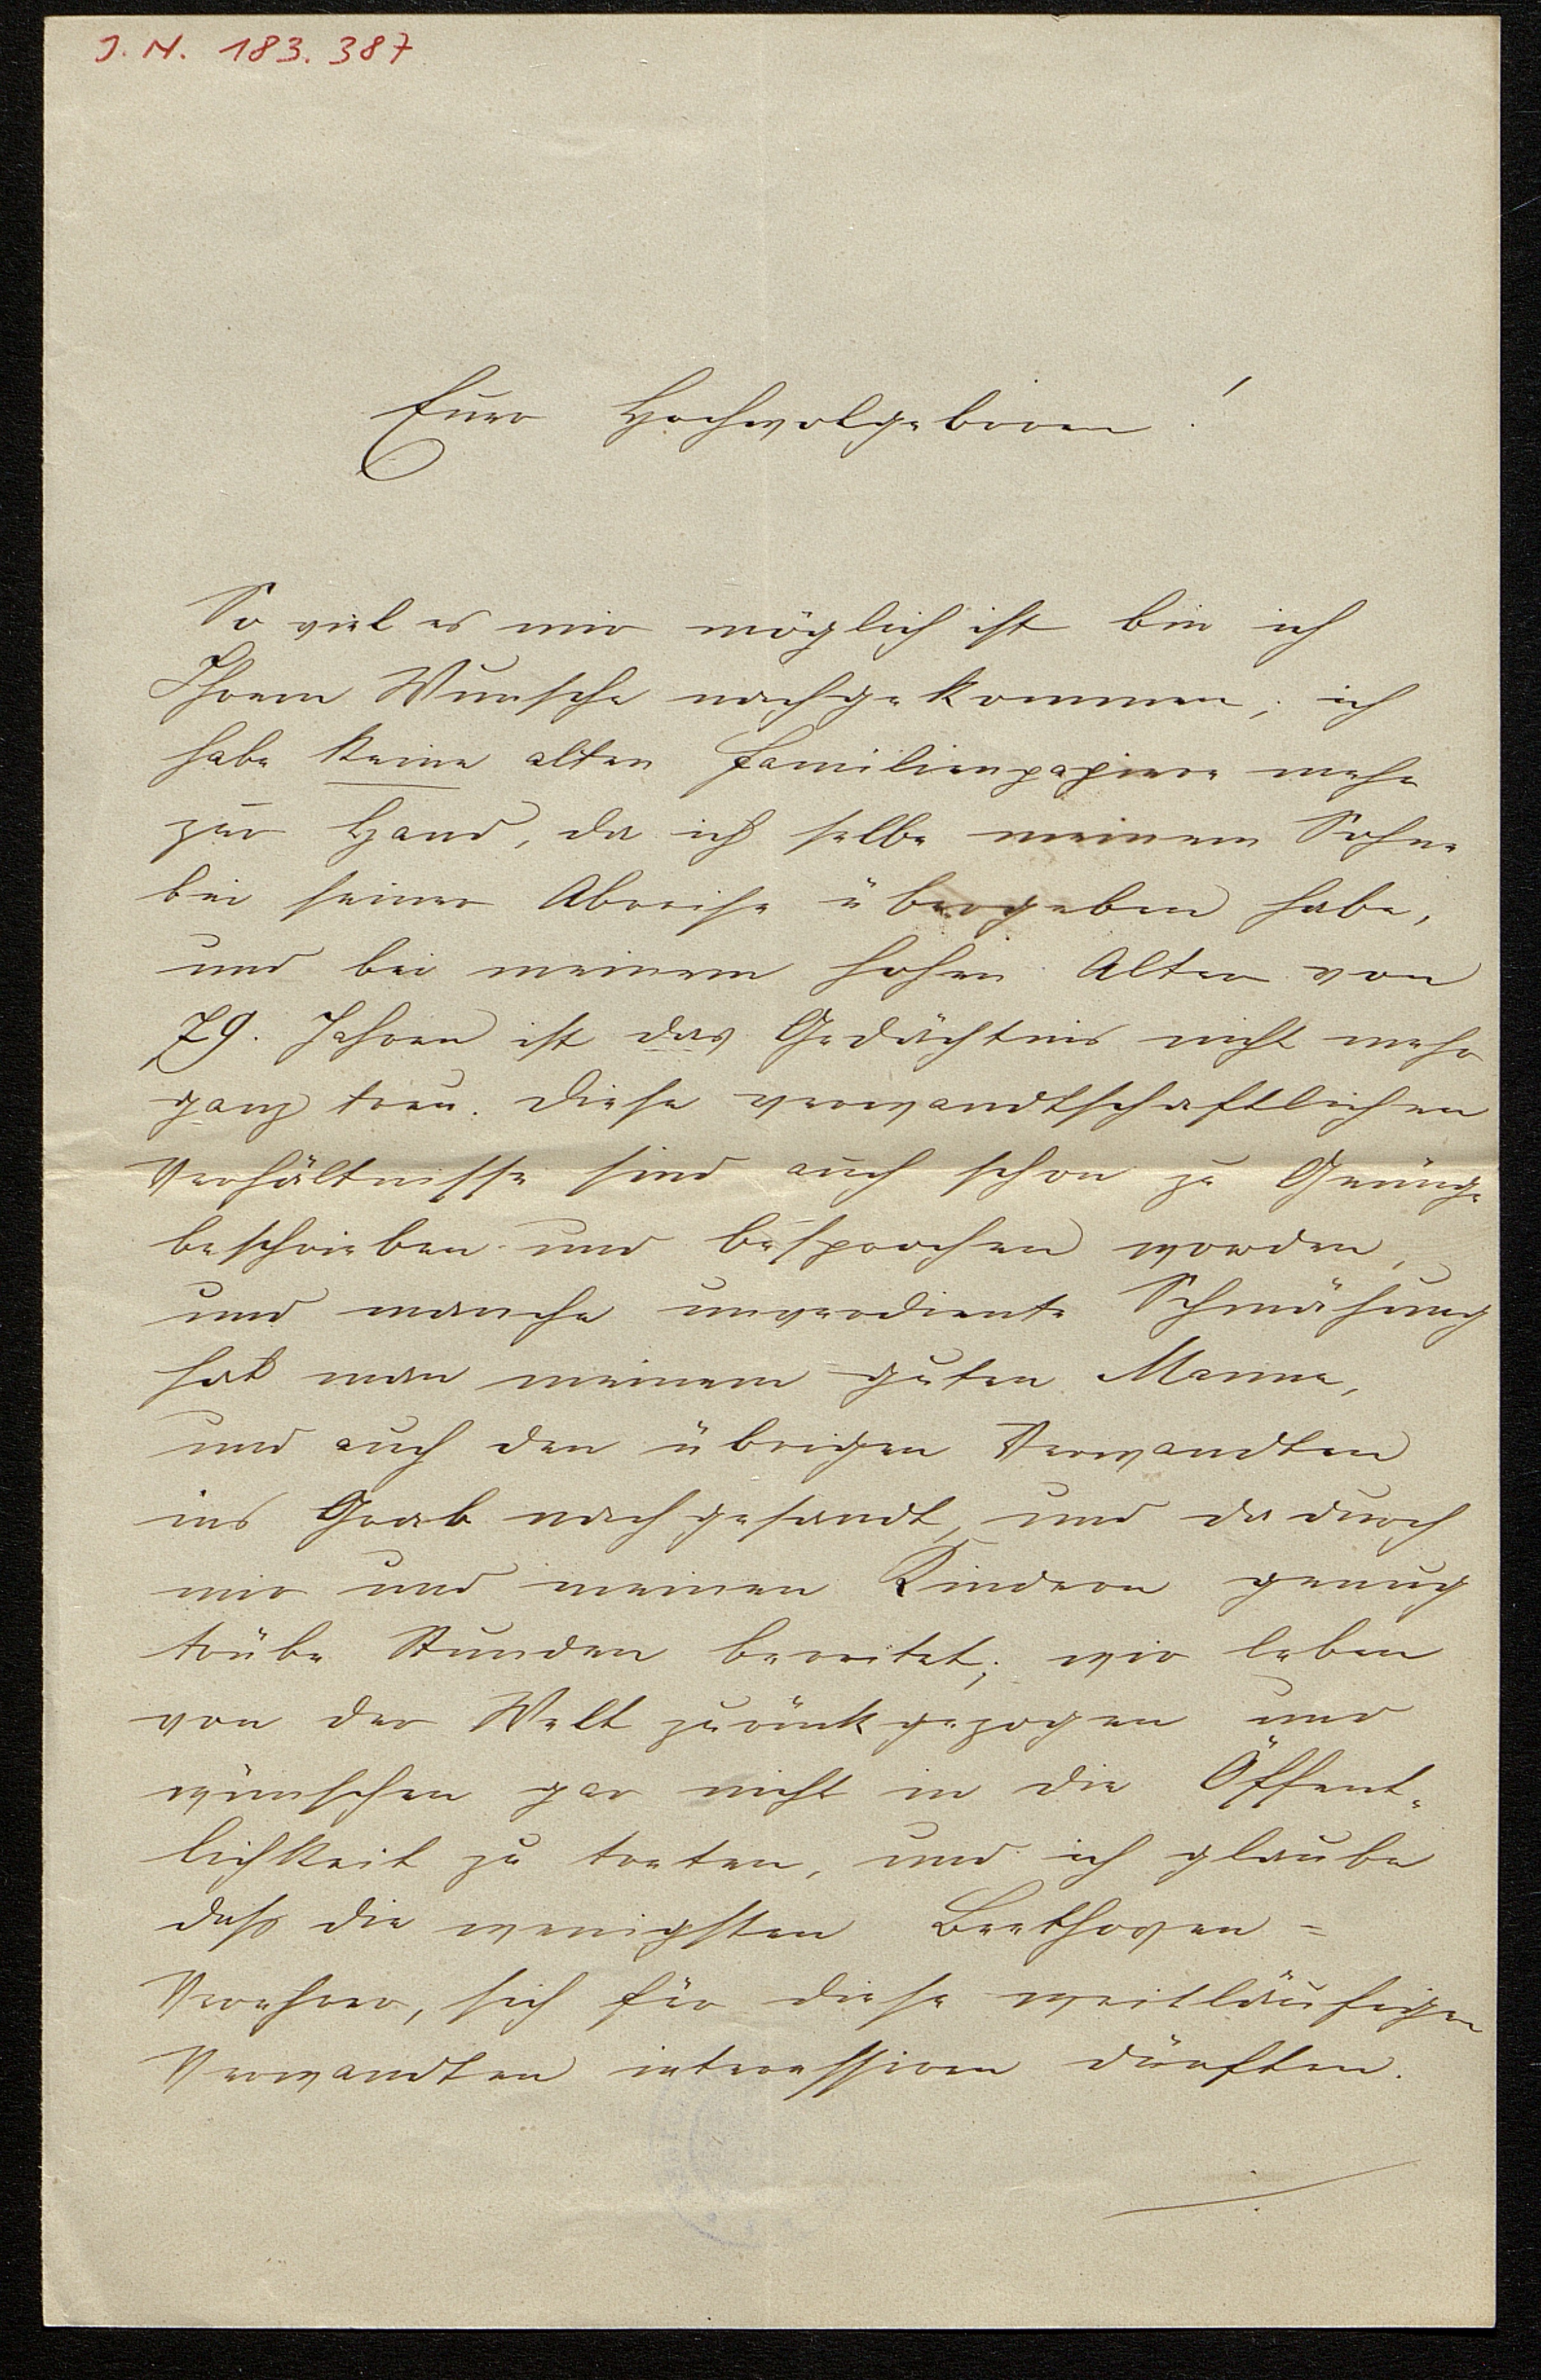 J. N. 183.387
Euer Hochwolgeboren!
So viel es mir möglich ist bin ich
Ihrem Wunsche nachgekommen, ich
habe keine alten Familienpapiere mehr
zur Hand, da ich selbe meinem Sohne
bei seiner Abreise übergeben habe,
und bei meinem hohen Alter von
79. Jahren ist das Gedächtnis nicht mehr
ganz treu. Diese verwandtschaftlichen
Verhältnisse sind auch schon zu Genüge
beschrieben und besprochen worden,
und manche unverdiente Schmähung
hat man meinem guten Manne,
und auch den übrigen Verwandten
ins Grab nachgesandt, und dadurch
mir und meinen Kindern genug
trübe Stunden bereitet; wir leben
von der Welt zurückgezogen und
wünschen gar nicht in die Öffent-
lichkeit zu treten, und ich glaube
daß die wenigsten Beethoven=
Verehrer, sich für diese weitläufigen
Verwandten interessiren dürften.